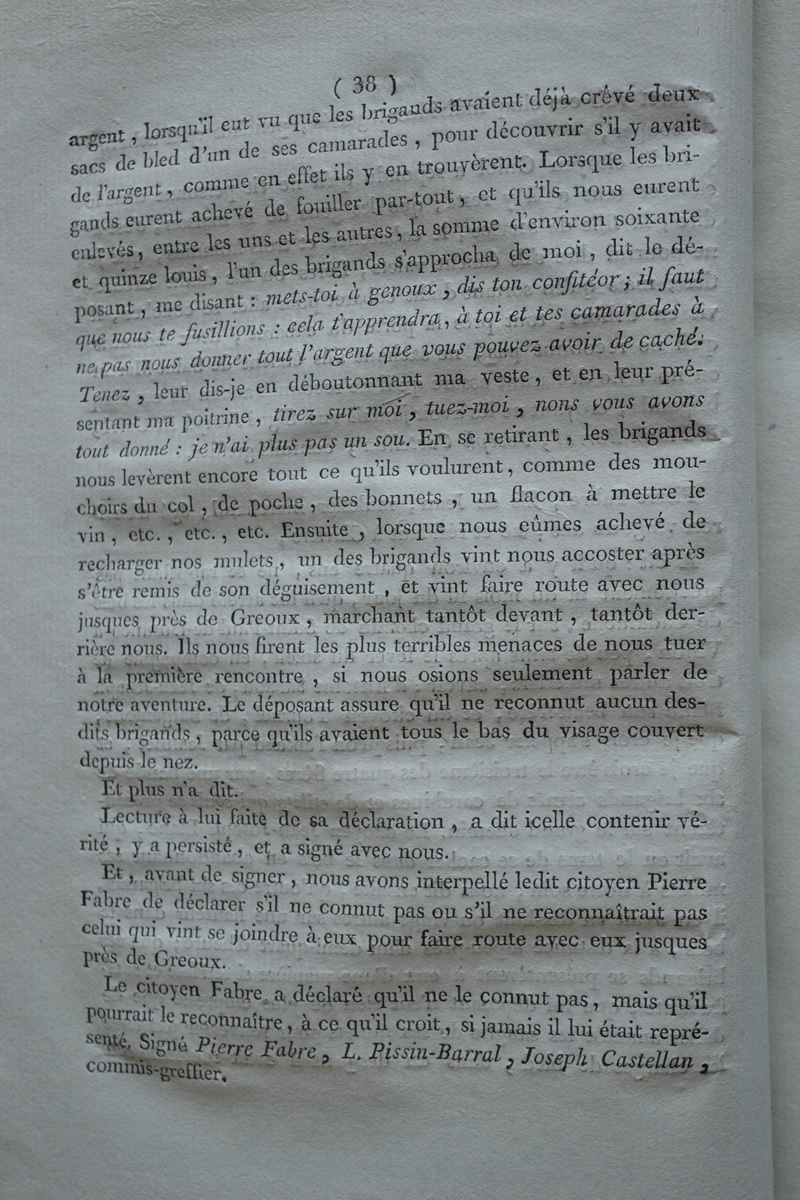 ( 38 )
argent , lorsqu'il eut vu que les brigands avaient déjà crévé deux
sacs de bled d'un de ses camarades , pour découvrir s'il y avait
de l'argent , comme en effet ils y en trouvèrent. Lorsque les bri-
gands eurent achevé de fouiller par-tout , et qu'ils nous eurent
enlevés , entre les uns et les autres , la somme d'environ soixante
et quinze louis , l'un des brigands s'approcha de moi , dit le dé-
posant , me disant : mets-toi à genoux , dis ton confitéor ; il faut
que nous te fusillions : cela t'apprendra , à toi et tes camarades à
ne pas nous donner tout l'argent que vous pouvez avoir de caché.
Tenez , leur dis-je en déboutonnant ma veste , et en leur pré-
sentant ma poitrine , tirez sur moi , tuez-moi , nons vous avons
tout donné : je n'ai plus pas un sou. En se retirant , les brigands
nous levèrent encore tout ce qu'ils voulurent , comme des mou-
choirs du col , de poche , des bonnets , un flacon à mettre le
vin , etc. , etc. , etc. Ensuite , lorsque nous eûmes achevé de
recharger nos mulets , un des brigands vint nous accoster après
s'être remis de son déguisement , et vint faire route avec nous
jusques près de Greoux , marchant tantôt devant , tantôt der-
rière nous. Ils nous firent les plus terribles menaces de nous tuer
à la première rencontre , si nous osions seulement parler de
notre aventure. Le déposant assure qu'il ne reconnut aucun des-
dits brigands , parce qu'ils avaient tous le bas du visage couvert
depuis le nez.
Et plus n'a dit.
Lecture à lui faite de sa déclaration , a dit icelle contenir vé-
rité , y a persisté , et a signé avec nous.
Et , avant de signer , nous avons interpellé ledit citoyen Pierre
Fabre de déclarer s'il ne connut pas ou s'il ne reconnaîtrait pas
celui qui vint se joindre à eux pour faire route avec eux jusques
près de Greoux.
Le citoyen Fabre a déclaré qu'il ne le connut pas , mais qu'il
pourrait le reconnaître , à ce qu'il croit , si jamais il lui était repré-
senté. Signé Pierre Fabre , L. Pissin-Barral , Joseph Castellan ,
commis-greffier.